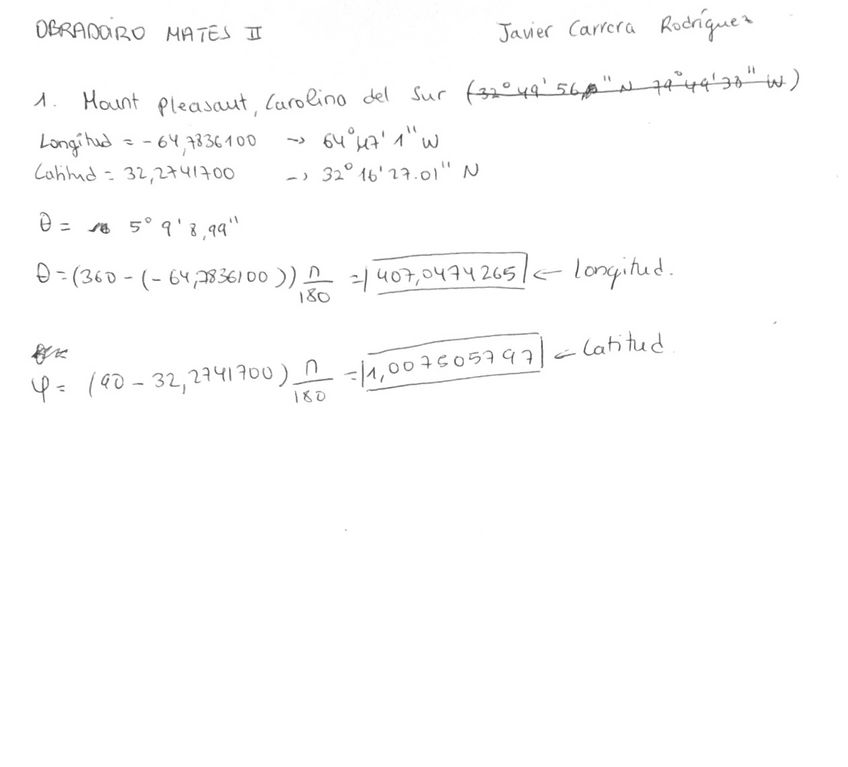 OBRADOIRO MATES II
Javier Carrera Rodríguez
1. Mount pleasant, Carolina del Sur (32° 49' 56" N 79° 49' 30" W)
Longitud = -64,7836100 → 64° 47' 1" W
Latitud = 32,2741700 → 32° 16' 27.01" N
θ = 5° 9' 8,99"
θ = (360 - (-64,7836100)) π/180 = 407,0474265 ← Longitud.
φ = (90 - 32,2741700) π/180 = 1,007505797 ← Latitud